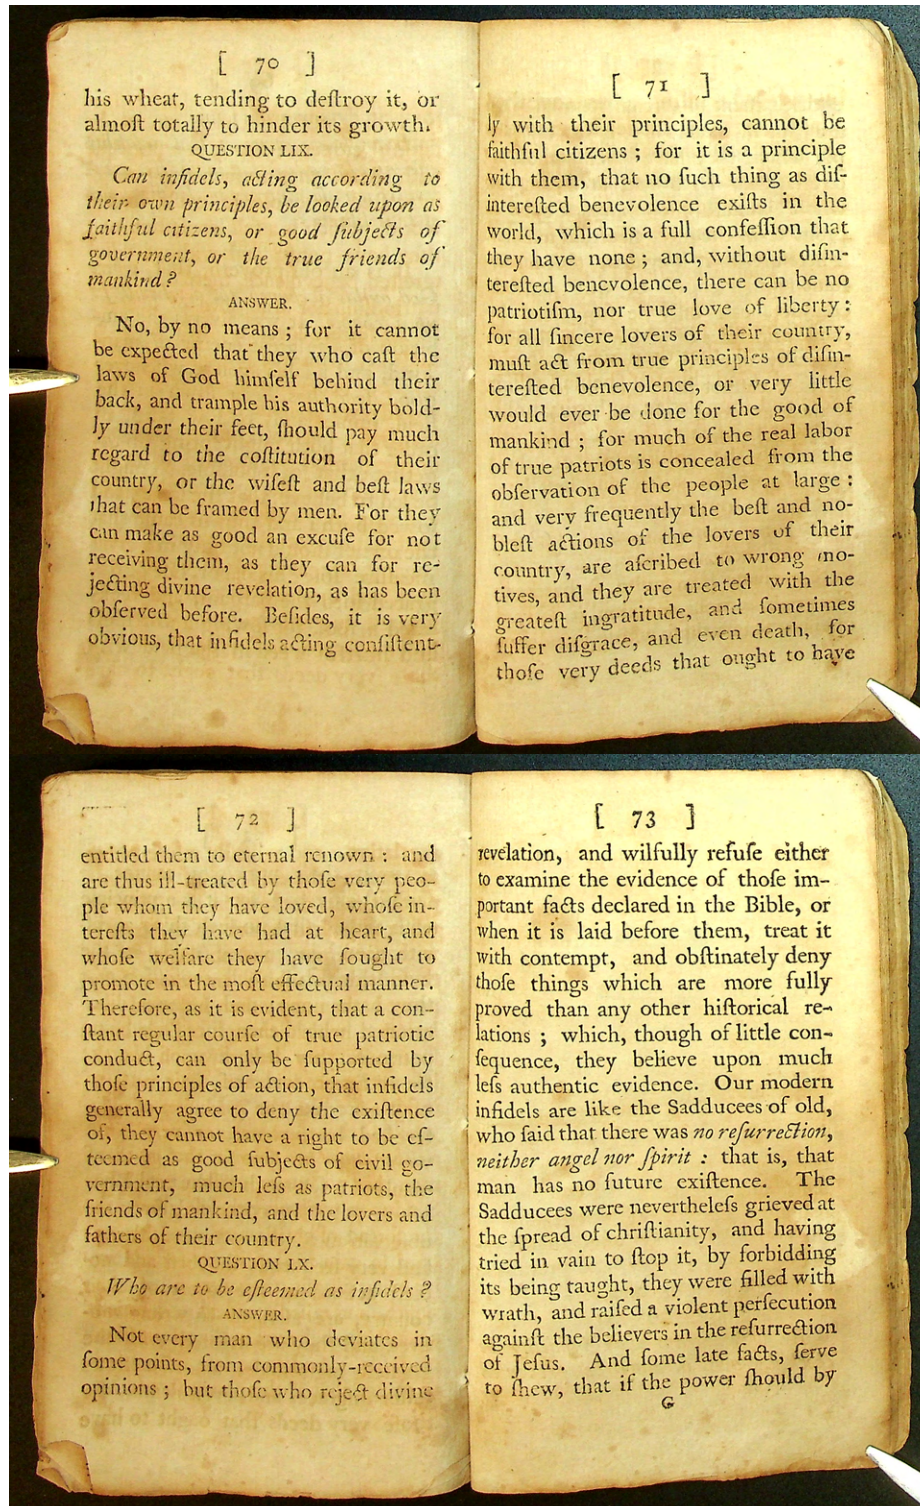 [ 70 ]
his wheat, tending to deſtroy it, or
almoſt totally to hinder its growth.
QUESTION LIX.
Can infidels, acting according to
their own principles, be looked upon as
faithful citizens, or good ſubjects of
government, or the true friends of
mankind ?
ANSWER.
No, by no means ; for it cannot
be expected that they who caſt the
laws of God himſelf behind their
back, and trample his authority bold-
ly under their feet, ſhould pay much
regard to the coſtitution of their
country, or the wiſeſt and beſt laws
that can be framed by men. For they
can make as good an excuſe for not
receiving them, as they can for re-
jecting divine revelation, as has been
obſerved before. Beſides, it is very
obvious, that infidels acting conſiſtent-
[ 71 ]
ly with their principles, cannot be
faithful citizens ; for it is a principle
with them, that no ſuch thing as diſ-
intereſted benevolence exiſts in the
world, which is a full confeſſion that
they have none ; and, without diſin-
tereſted benevolence, there can be no
patriotiſm, nor true love of liberty :
for all ſincere lovers of their country,
muſt act from true principles of diſin-
tereſted benevolence, or very little
would ever be done for the good of
mankind ; for much of the real labor
of true patriots is concealed from the
obſervation of the people at large :
and very frequently the beſt and no-
bleſt actions of the lovers of their
country, are aſcribed to wrong mo-
tives, and they are treated with the
greateſt ingratitude, and ſometimes
ſuffer diſgrace, and even death, for
thoſe very deeds that ought to have
[ 72 ]
entitled them to eternal renown : and
are thus ill-treated by thoſe very peo-
ple whom they have loved, whoſe in-
tereſts they have had at heart, and
whoſe welfare they have ſought to
promote in the moſt effectual manner.
Therefore, as it is evident, that a con-
ſtant regular courſe of true patriotic
conduct, can only be ſupported by
thoſe principles of action, that infidels
generally agree to deny the exiſtence
of, they cannot have a right to be eſ-
teemed as good ſubjects of civil go-
vernment, much leſs as patriots, the
friends of mankind, and the lovers and
fathers of their country.
QUESTION LX.
Who are to be eſteemed as infidels ?
ANSWER.
Not every man who deviates in
ſome points, from commonly-received
opinions ; but thoſe who reject divine
[ 73 ]
revelation, and wilfully refuſe either
to examine the evidence of thoſe im-
portant facts declared in the Bible, or
when it is laid before them, treat it
with contempt, and obſtinately deny
thoſe things which are more fully
proved than any other hiſtorical re-
lations ; which, though of little con-
ſequence, they believe upon much
leſs authentic evidence. Our modern
infidels are like the Sadducees of old,
who ſaid that there was no reſurrection,
neither angel nor ſpirit : that is, that
man has no future exiſtence. The
Sadducees were nevertheleſs grieved at
the ſpread of chriſtianity, and having
tried in vain to ſtop it, by forbidding
its being taught, they were filled with
wrath, and raiſed a violent perſecution
againſt the believers in the reſurrection
of Jeſus. And ſome late facts, ſerve
to ſhew, that if the power ſhould by
G